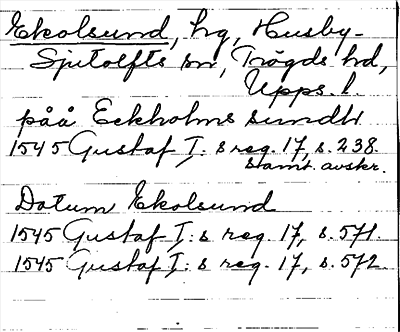 Ekolsund, hg, Husby-
Sjutolfts sn, Trögds hd,
Upps. l.
påå Eckholms sundh
1545 Gustaf I:s reg. 17, s. 238.
samt. avskr.
Datum Ekolsund
1545 Gustaf I:s reg. 17, s. 571.
1545 Gustaf I:s reg. 17, s. 572